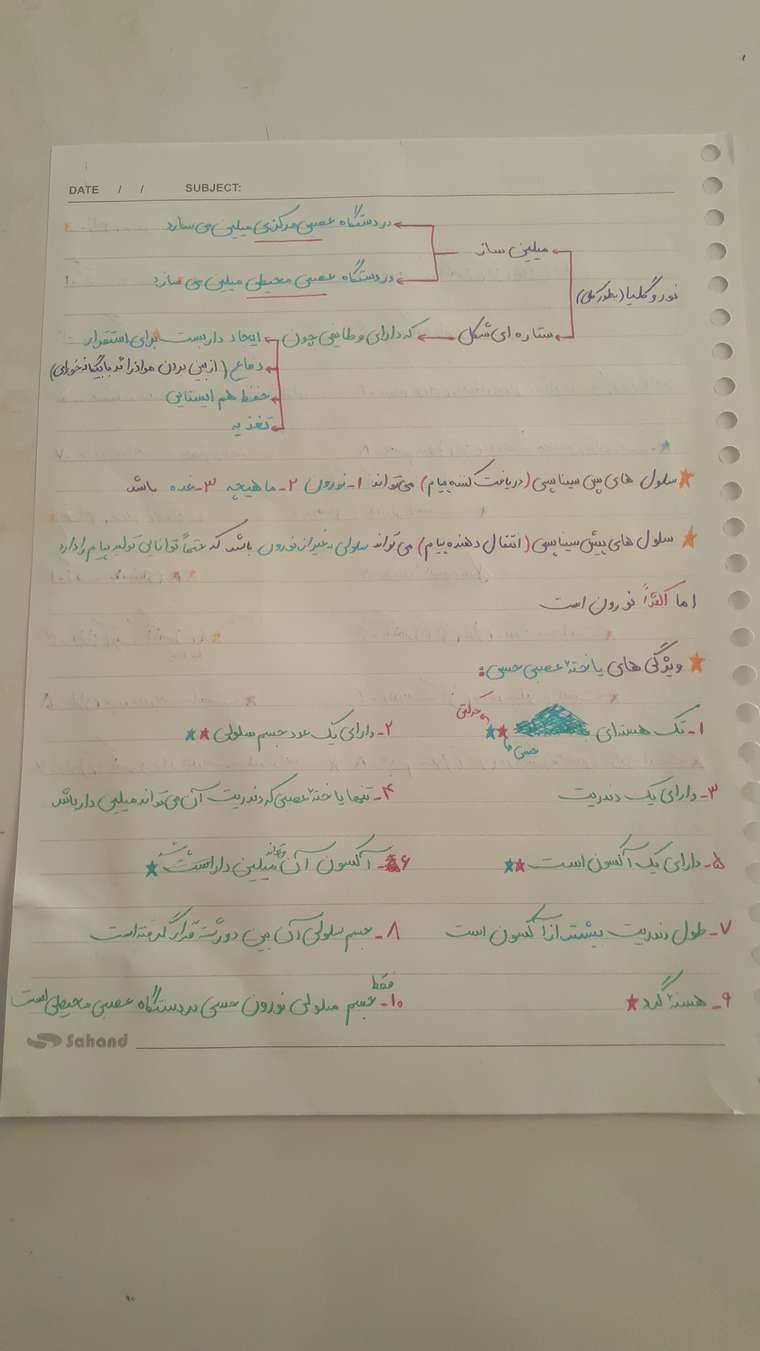 DATE / / SUBJECT:
در دستگاه عصبی مرکزی میلین می سازد
میلین ساز
در دستگاه عصبی محیطی میلین می سازد
نوروگلیا (بطور کلی)
ستاره ای شکل که دارای وظایفی چون ایجاد داربست برای استقرار
دفاع (از بین بردن مواد زائد با بیگانه خواری)
حفظ هم ایستایی
تغذیه
سلول های پس سیناپسی (دریافت کننده پیام) می تواند ۱- نورون ۲- ماهیچه ۳- غده باشد
سلول های پیش سیناپسی (انتقال دهنده پیام) می تواند سلولی به غیر از نورون باشد که حتماً توانایی تولید پیام را دارد
اما اکثراً نورون است
ویژگی های یاخته عصبی حسی:
حرکتی
۱- تک هسته ای ۲- دارای یک عدد جسم سلولی
حسی
۳- دارای یک دندریت ۴- تنها یاخته عصبی که دندریت آن می تواند میلین دار باشد
۵- دارای یک آکسون است ۶- آکسون آن میتواند میلین دار باشد
۷- طول دندریت بیشتر از آکسون است ۸- جسم سلولی آن بین دو رشته قرار گرفته است
۹- هسته گرد ۱۰- جسم سلولی نورون حسی فقط در دستگاه عصبی محیطی است
Sahand